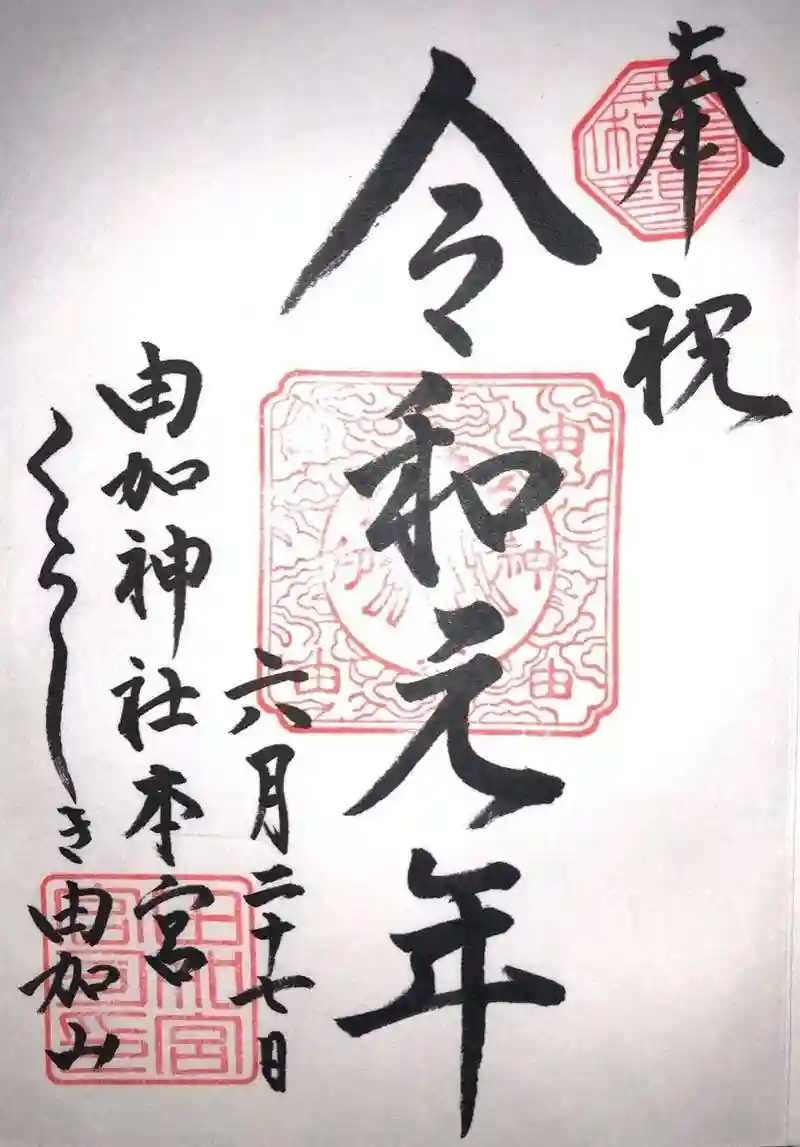 奉祝
令和元年
六月二十七日
由加神社本宮
くらしき由加山
由
神
由
由